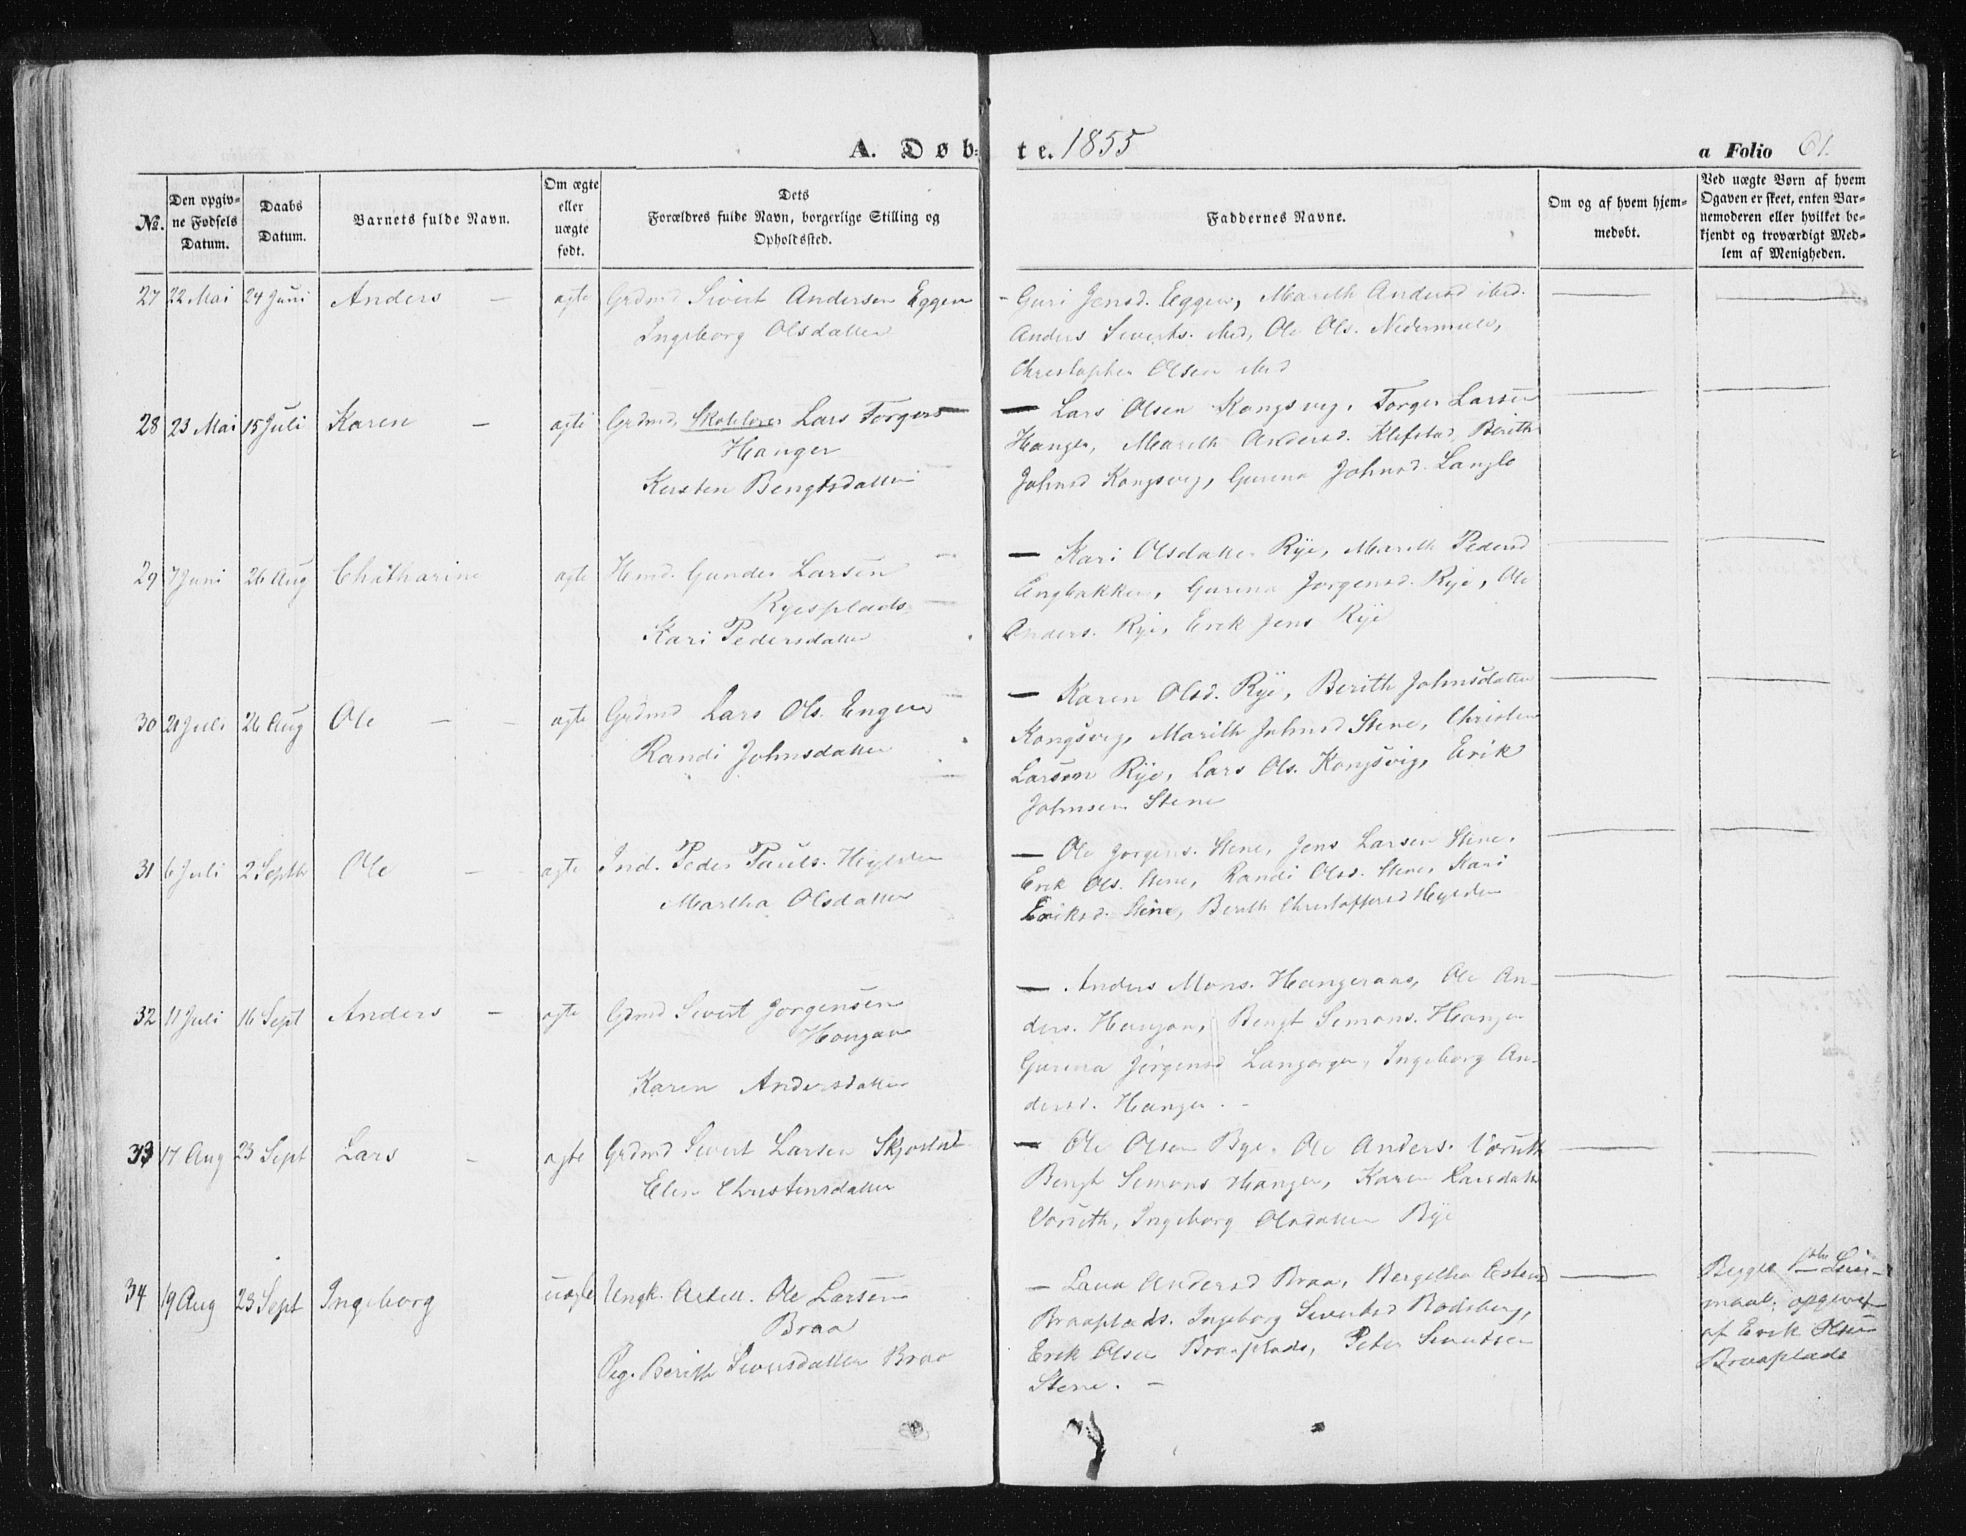 A. Døb-te. 1855
a Folio 61.
No.
Den opgiv-
ne Fødsels
Datum.
Daabs
Datum.
Barnets fulde Navn.
Om ægte
eller
uægte
født.
Dets
Forældres fulde Navn, borgerlige Stilling og
Opholdssted.
Faddernes Navne.
Om og af hvem hjem-
medøbt.
Ved uægte Børn af hvem
Opgaven er skeet, enten Bar-
nemoderen eller hvilket be-
kjendt og troværdigt Med-
lem af Menigheden.
27 22 Mai 24 Juni Anders – ægte Grdmd Sivert Andersen Eggen
Ingeborg Olsdatter
– Guri Jensd. Eggen, Marith Andersd ibid.
Anders Siverts. ibid, Ole Ols.
Christopher Olsen ibid
28 23 Mai 15 Juli Karen – ægte Grdmd, Skolelærer Lars Torgers
Hanger
Kersten Bengtsdatter
– Lars Olsen Kongsvig, Torger Larsen
Hanger, Marith Andersd. Klefstad, Berith
Johnsd Kongsvig, Gurina Johnsd. Langlo
29 7 Juni 26 Aug Chatharine ægte Hmd. Gunder Larsen
Ryesplads
Kari Pedersdatter
– Kari Olsdatter Rye, Marith Pedersd
Engbakken, Gurina Jørgensd. Rye, Ole
Anders. Rye, Erik Jens Rye
30 21 Juli 26 Aug Ole – – ægte Grdmd Lars Ols. Engen
Randi Johnsdatter
– Karen Olsd. Rye, Berith Johnsdatter
Kongsvig, Marith Johnsd Stene, Christen
Larsen Rye, Lars Ols. Kongsvig, Erik
Johnsen Stene
31 6 Juli 2 Septbr Ole – ægte Ind. Peder Pauls.
Martha Olsdatter
– Ole Jørgens. Stene, Jens Larsen Stene,
Erik Ols. Stene, Randi Olsd. Stene, Kari
Eriksd. Stene, Berith Christoffersd
32 11 Juli 16 Sept Anders – ægte Grdmd Sivert Jørgensen
Hougan
Karen Andersdatter
– Anders Mons. Hangeraas, Ole An-
ders. Hougan, Bengt Simons. Hanger
Gurina Jørgensd Langørgen, Ingeborg An-
dersd. Hanger. –
33 17 Aug 23 Sept Lars – ægte Grdmd Sivert Larsen Skjøstad
Elen Christensdatter
– Ole Olsen Bye, Ole Anders.
Bengt Simons Hanger, Karen Larsdatter
Ingeborg Olsdatter Bye
34 19 Aug 23 Sept Ingeborg uægte Ungk. Ole Larsen
Braa
Pig. Berith Siversdatter Braa
– Lava Andersd Braa, Bergitha
Braaplads. Ingeborg Sivertsd Rodsberg,
Erik Olsen Braaplads, Peter Sivertsen
Stene. –
Begges 1ste Leier-
maal. opgivet
af Erik Olsen
Braaplads